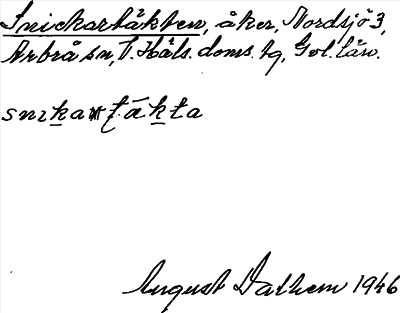 Snickartäkten, åker, Nordsjö 3,
Arbrå sn, V. Häls. doms. hg, Gvl. län.
snɪka tǟkta
August Dalhem 1946